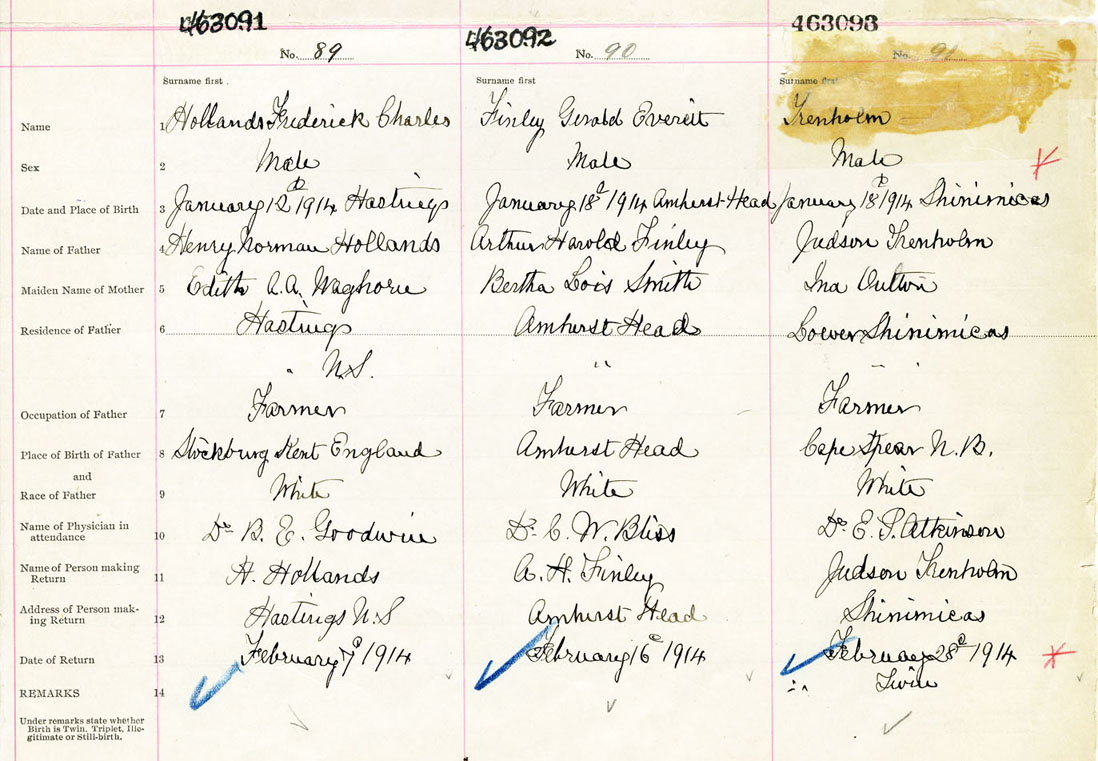 463091 463092 463093
No. 89 No. 90 No. 91
Surname first Surname first Surname first
Name 1 Hollands Frederick Charles Finley Gerald Everett Trenholm
Sex 2 Male Male Male
Date and Place of Birth 3 January 12 1914 Hastings January 18 1914 Amherst Head January 18 1914 Shinimicas
Name of Father 4 Henry Norman Hollands Arthur Harold Finley Judson Trenholm
Maiden Name of Mother 5 Edith A.A. Waghorn Bertha Lois Smith Ina Oulton
Residence of Father 6 Hastings Amherst Head Lower Shinimicas
" N.S. " "
Occupation of Father 7 Farmer Farmer Farmer
Place of Birth of Father 8 Stockburg Kent England Amherst Head Cape Spear N.B.
and
Race of Father 9 White White White
Name of Physician in
attendance 10 Dr B. E. Goodwin Dr C. W. Bliss Dr E. P. Atkinson
Name of Person making
Return 11 H. Hollands A. H. Finley Judson Trenholm
Address of Person mak-
ing Return 12 Hastings N.S Amherst Head Shinimicas
Date of Return 13 February 7 1914 February 16 1914 February 28 1914
REMARKS 14 Twin
Under remarks state whether
Birth is Twin, Triplet, Ille-
gitimate or Still-birth.